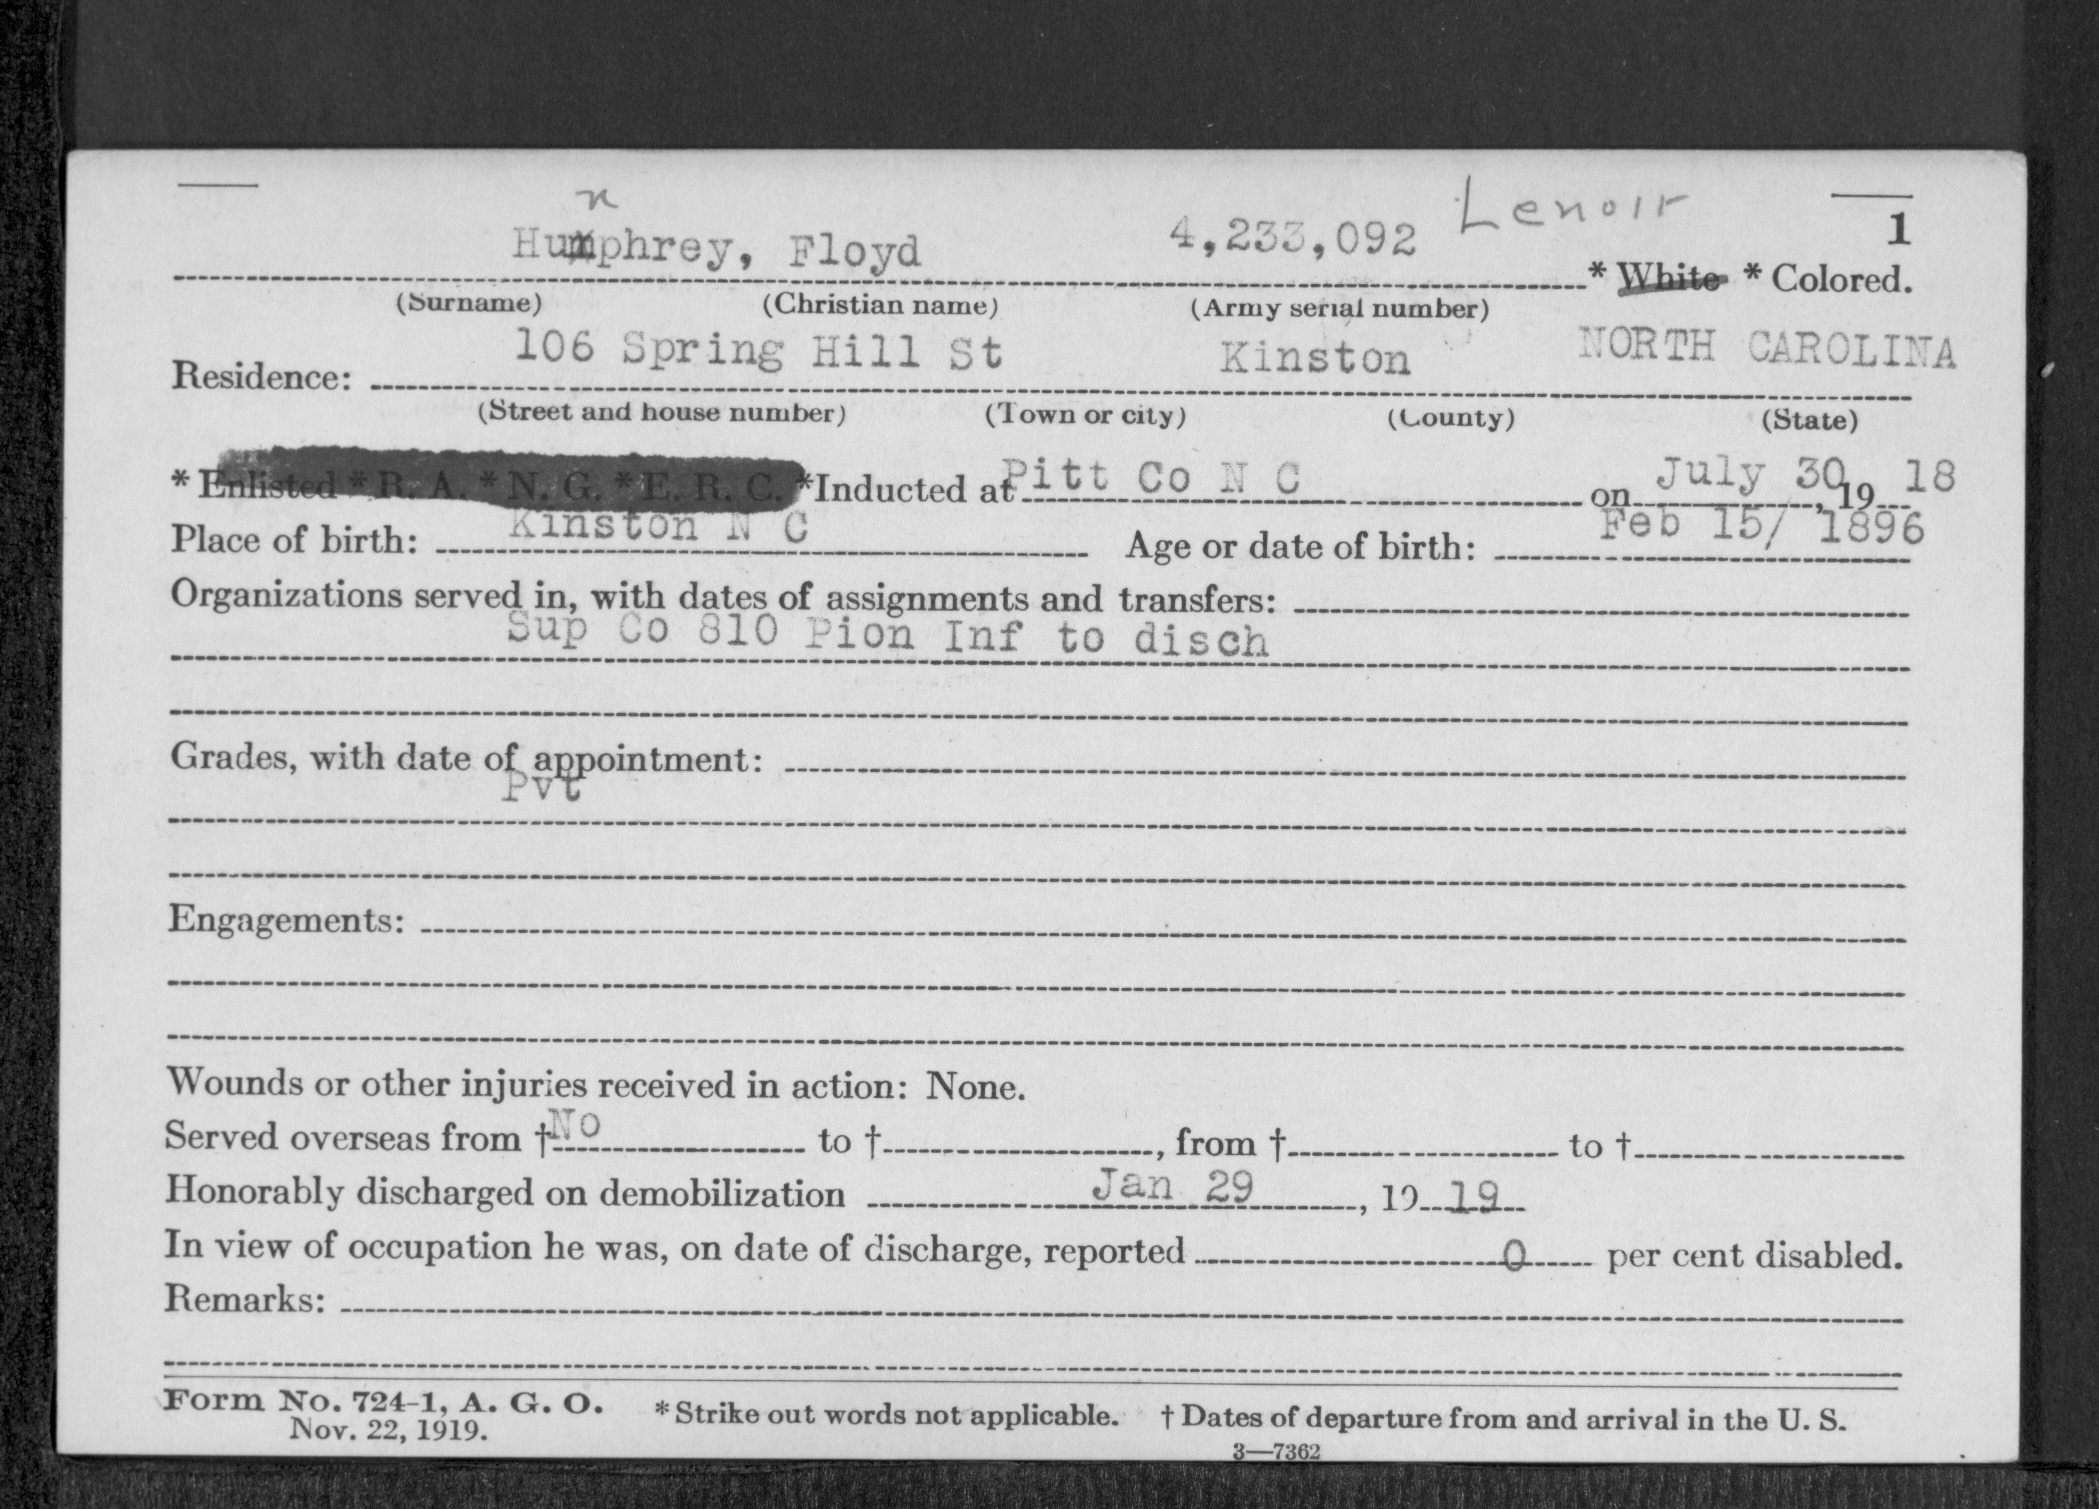 n
Humphrey, Floyd 4,233,092 Lenoir 1
* White * Colored.
(Surname) (Christian name) (Army serial number)
106 Spring Hill St Kinston NORTH CAROLINA
Residence:
(Street and house number) (Town or city) (County) (State)
* Enlisted * R. A. * N. G. * E. R. C. *Inducted at Pitt Co N C on July 30, 19 18
Place of birth: Kinston N C Age or date of birth: Feb 15/ 1896
Organizations served in, with dates of assignments and transfers:
Sup Co 810 Pion Inf to disch
Grades, with date of appointment:
Pvt
Engagements:
Wounds or other injuries received in action: None.
Served overseas from † No to †, from † to †
Honorably discharged on demobilization Jan 29, 19 19
In view of occupation he was, on date of discharge, reported 0 per cent disabled.
Remarks:
Form No. 724-1, A. G. O. * Strike out words not applicable. † Dates of departure from and arrival in the U. S.
Nov. 22, 1919.
3—7362